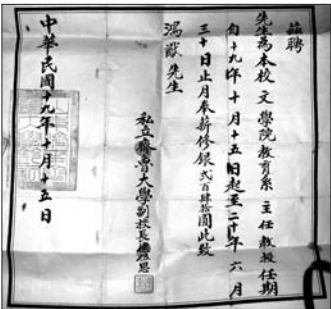 茲聘
先生為本校文學院教育系主任教授任期
自十九年十月十五日起至二十年六月
三十日止月奉薪修銀弍百肆拾圓此致
鴻猷先生
私立齊魯大學副校長
中華民國十九年十月十五日